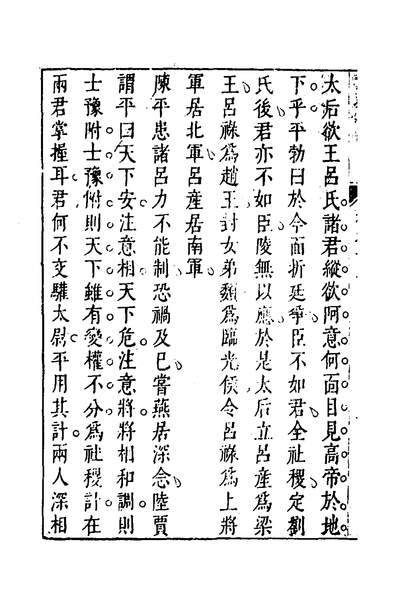 太后欲王呂氏諸君縱欲阿意何面目見高帝於地
下乎平勃曰於今面折廷爭臣不如君全社稷定劉
氏後君亦不如臣陵無以應於是太后立呂產爲梁
王呂祿爲趙王封女弟嬃爲臨光侯令呂祿爲上將
軍居北軍呂產居南軍
陳平患諸呂力不能制恐禍及已嘗燕居深念陸賈
謂平曰天下安注意相天下危注意將將相和調則
士豫附士豫附則天下雖有變權不分爲社稷計在
兩君掌握耳君何不交驩太尉平用其計兩人深相